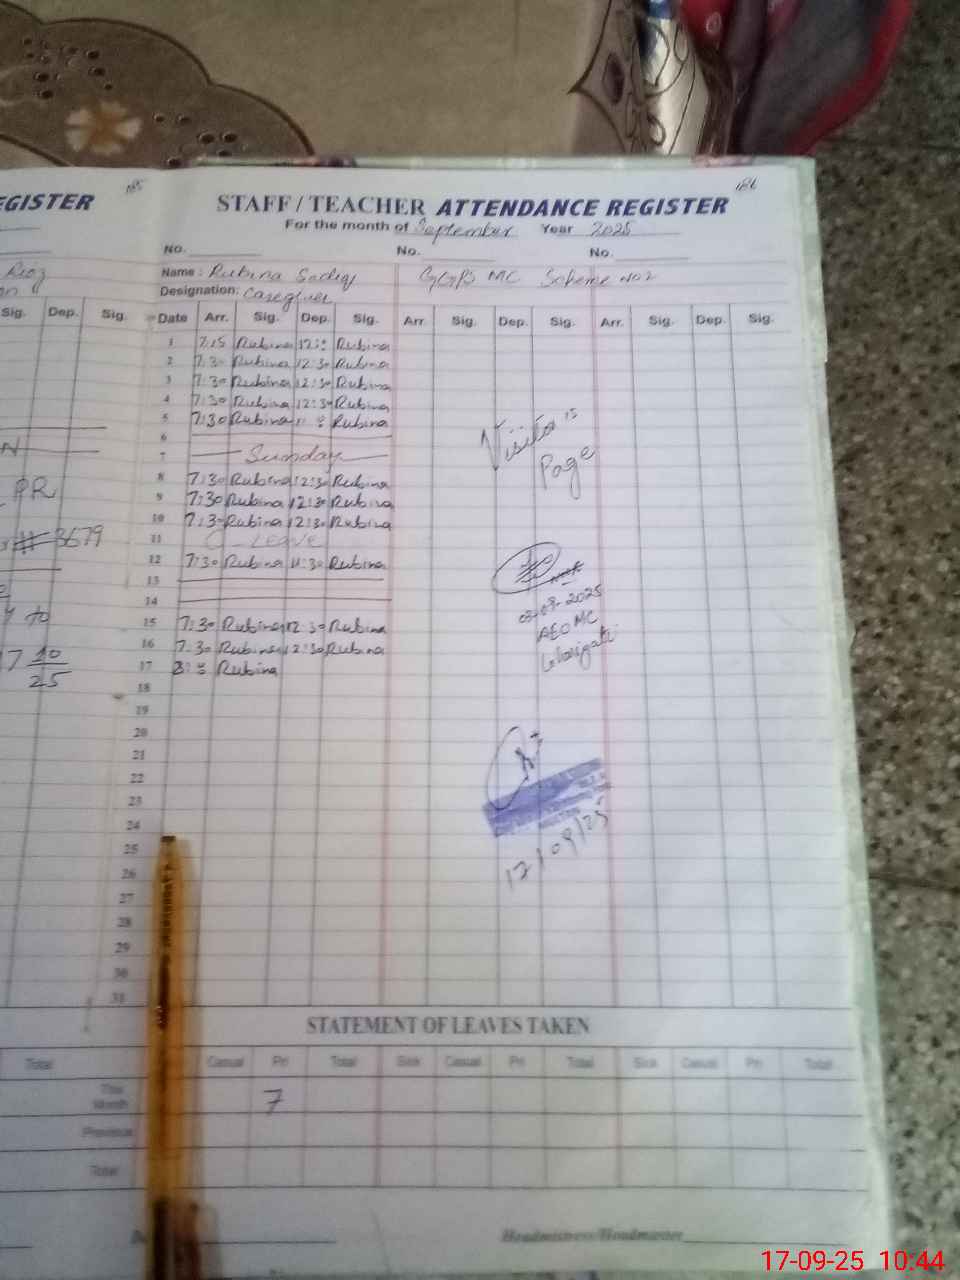 185
186
EGISTER
STAFF / TEACHER ATTENDANCE REGISTER
For the month of September Year 2025
No. No. No.
Name: Rubina Sadiq GGPS MC Scheme No 2
Designation: Caregiver
Sig. Dep. Sig.
Date Arr. Sig. Dep. Sig. Arr. Sig. Dep. Sig. Arr. Sig. Dep. Sig.
1 7:15 Rubina 12: Rubina
2 7:30 Rubina 12:30 Rubina
3 7:30 Rubina 12:30 Rubina
4 7:30 Rubina 12:30 Rubina
5 7:30 Rubina Rubina
6
7 Sunday
8 7:30 Rubina 12:30 Rubina
9 7:30 Rubina 12:30 Rubina
10 7:30 Rubina 12:30 Rubina
11 LEAVE
12 7:30 Rubina 11:30 Rubina
13
14
15 7:30 Rubina 12:30 Rubina
16 7:30 Rubina 12:30 Rubina
17 8: Rubina
18
19
20
21
22
23
24
25
26
27
28
29
30
31
Visitor's
Page
2025
AEO MC
12/09/25
PR
3679
to
10
25
STATEMENT OF LEAVES TAKEN
Total Casual Pri Total Sick Casual Pri Total Sick Casual Pri Total
This
Month 7
Previous
Total
Headmistress/Headmaster
17-09-25 10:44